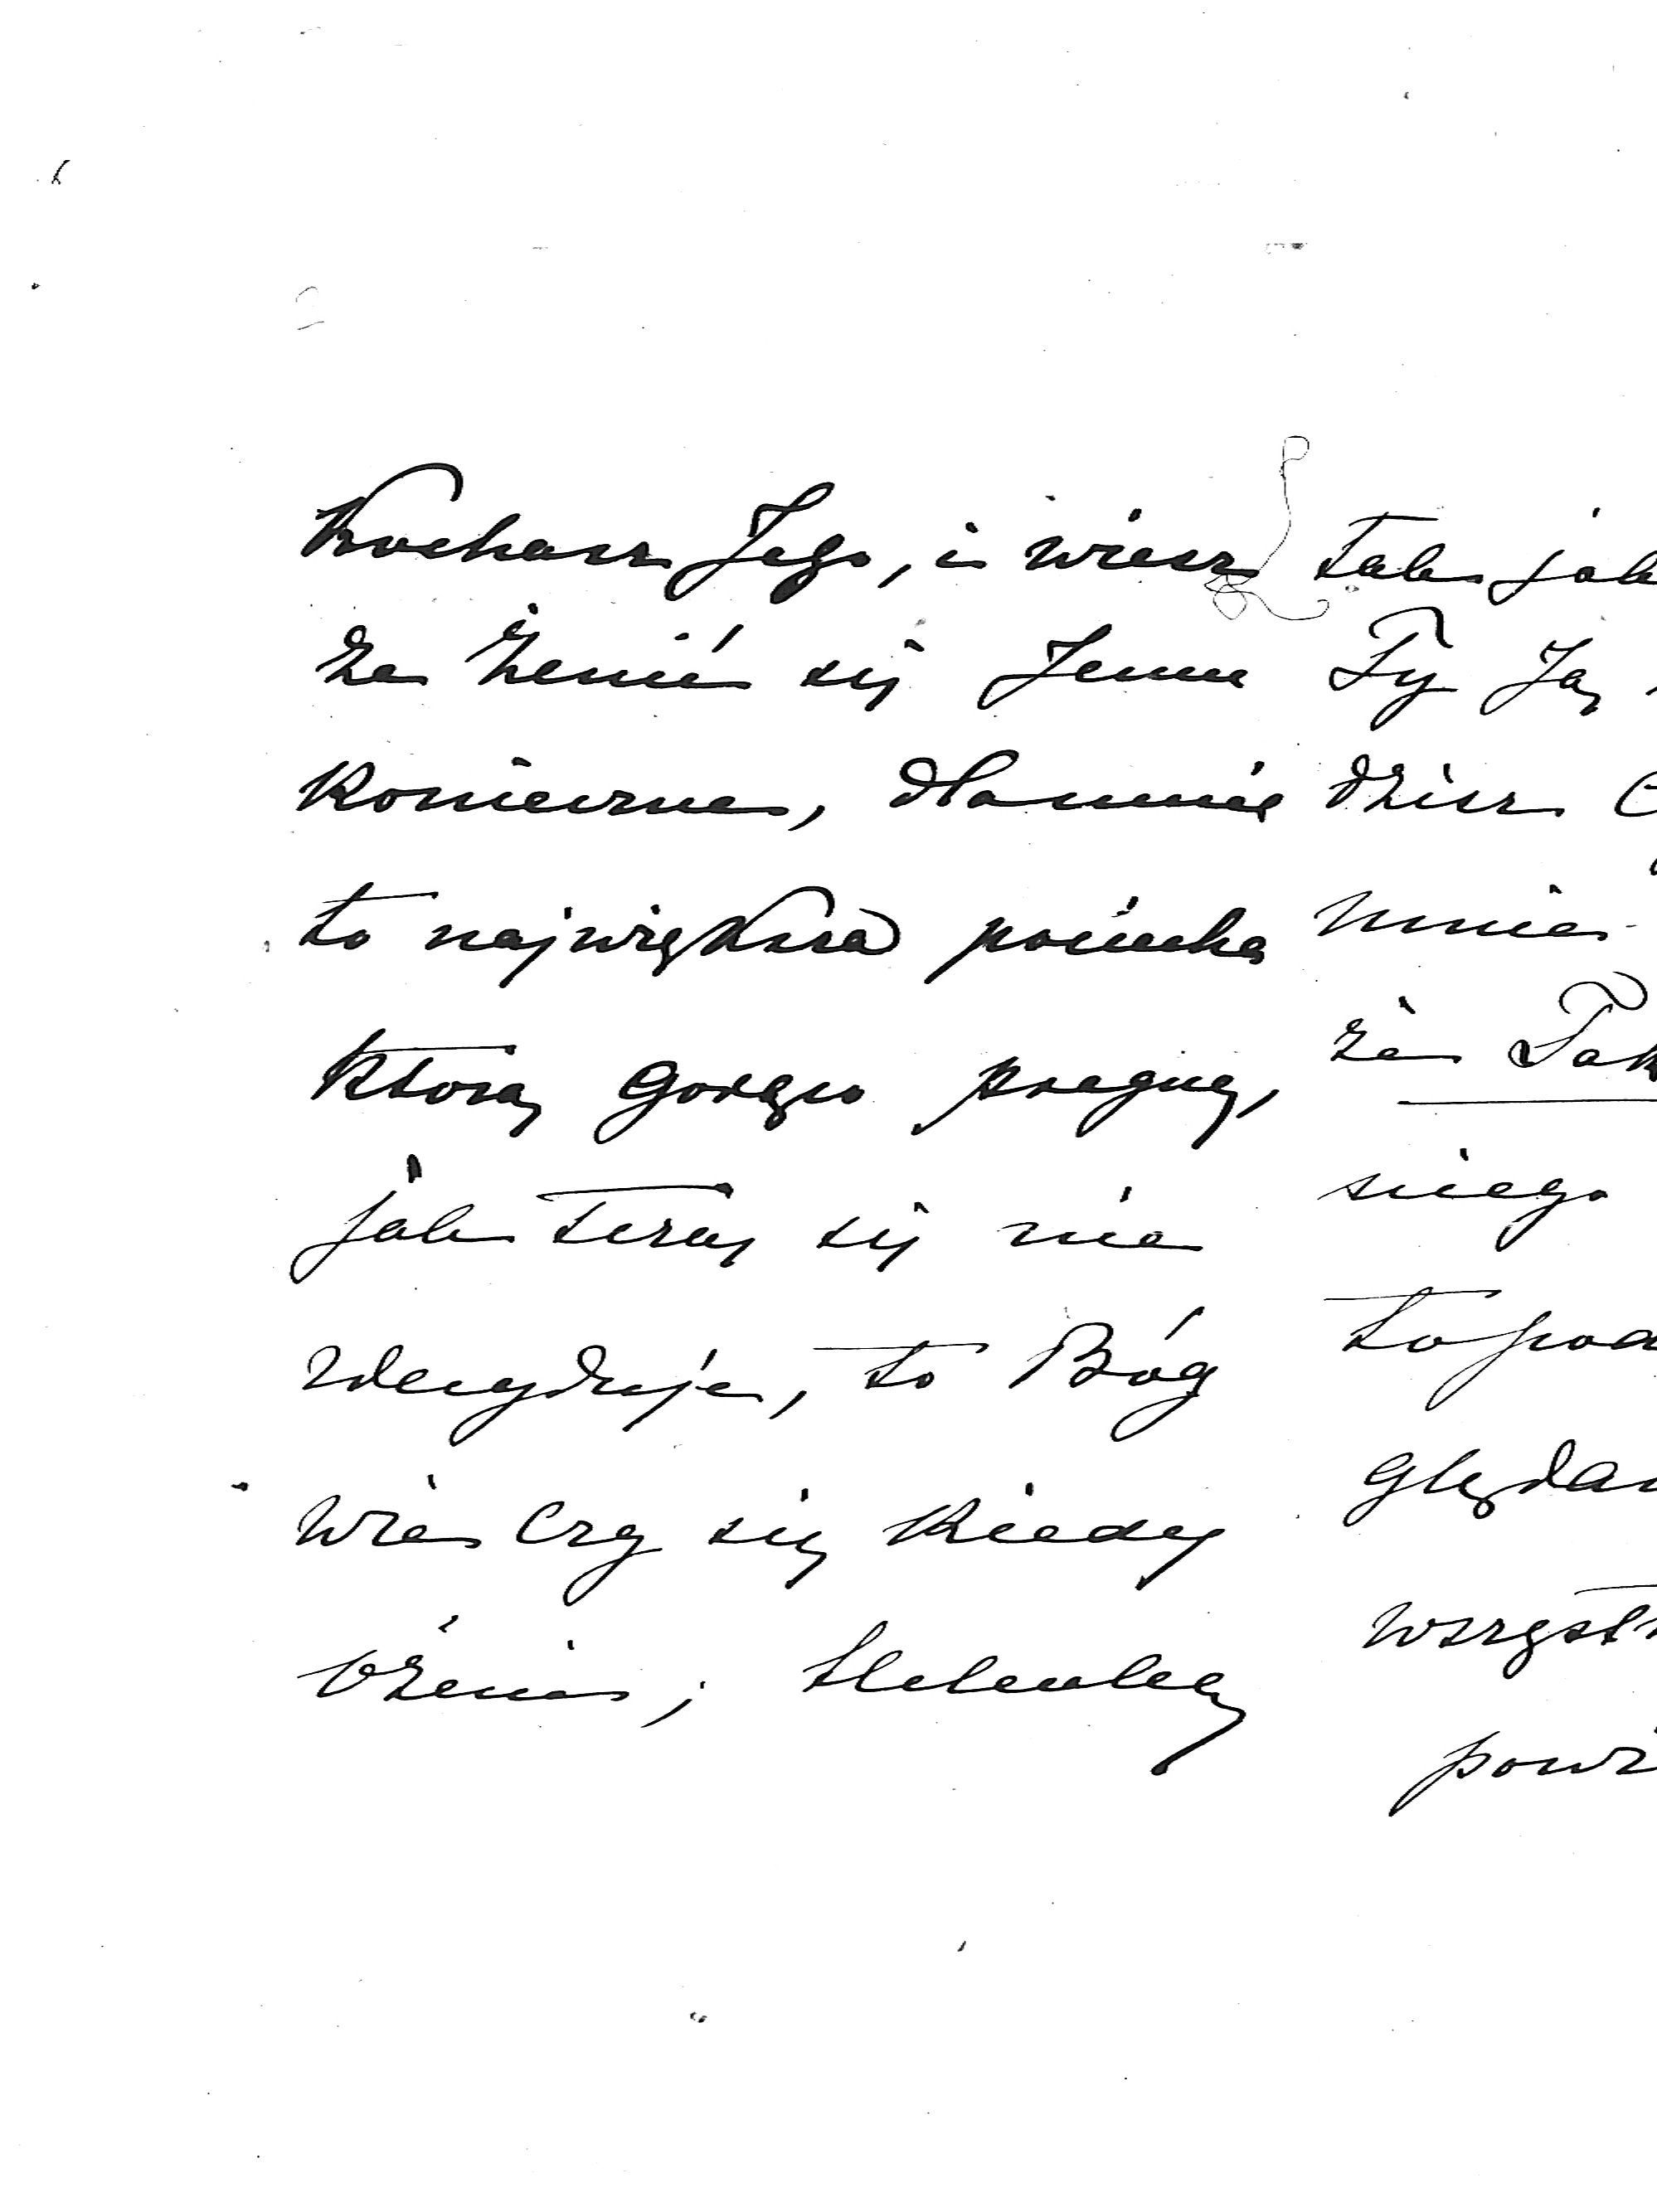 Kochasz Jego, i wiesz
że żenić się Jemu
Konieczna, dla mnie
to największa pociecha
Którą gorąco pragnę,
jak teraz się nie
zdecyduje, to Bóg
wie czy się Kiedy
ożeni; Helenkę
tak jak
Ty Ją
dzisz
mnie
że Tak
niego
to poz
ględan
wszystk
powi